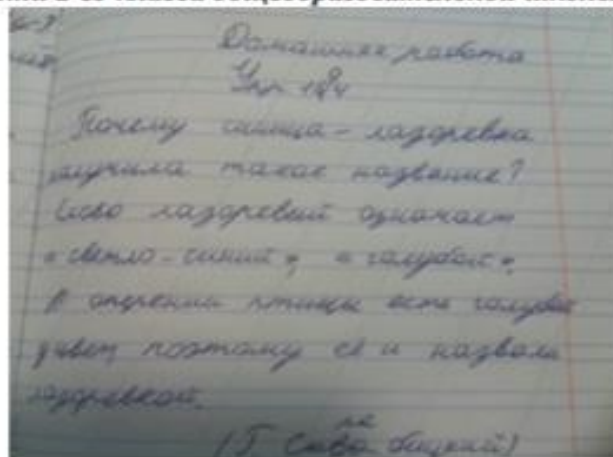 Домашняя работа
Упр 184
Почему синица - лазоревка
получила такое название?
Слово лазоревый означает
«светло-синий», «голубой».
В оперении птицы есть голубой
цвет, поэтому её и назвали
лазоревкой.